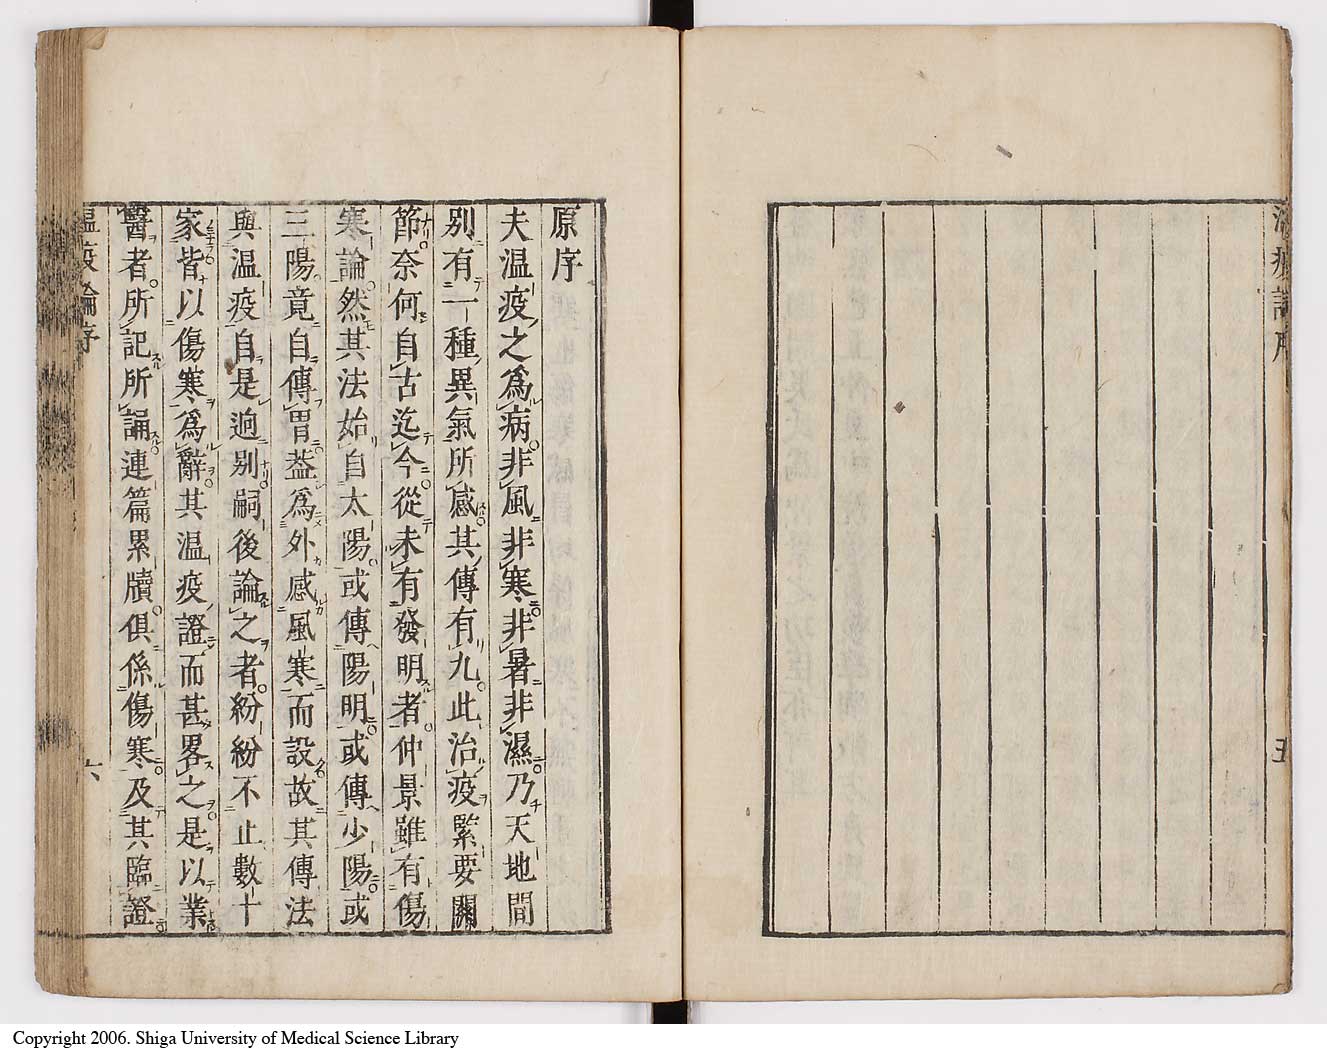 原序
夫温疫之爲病非風非寒非暑非濕乃天地間
别有一種異氣所感其傳有九此治疫緊要關
節奈何自古迄今從未有發明者仲景雖有傷
寒論然其法始自太陽或傳陽明或傳少陽或
三陽竟自傳胃葢爲外感風寒而設故其傳法
與温疫自是逈别嗣後論之者紛紛不止數十
家皆以傷寒爲辭其温疫證而甚畧之是以業
醫者所記所誦連篇累牘俱係傷寒及其臨證
温疫論序
六
Copyright 2006. Shiga University of Medical Science Library